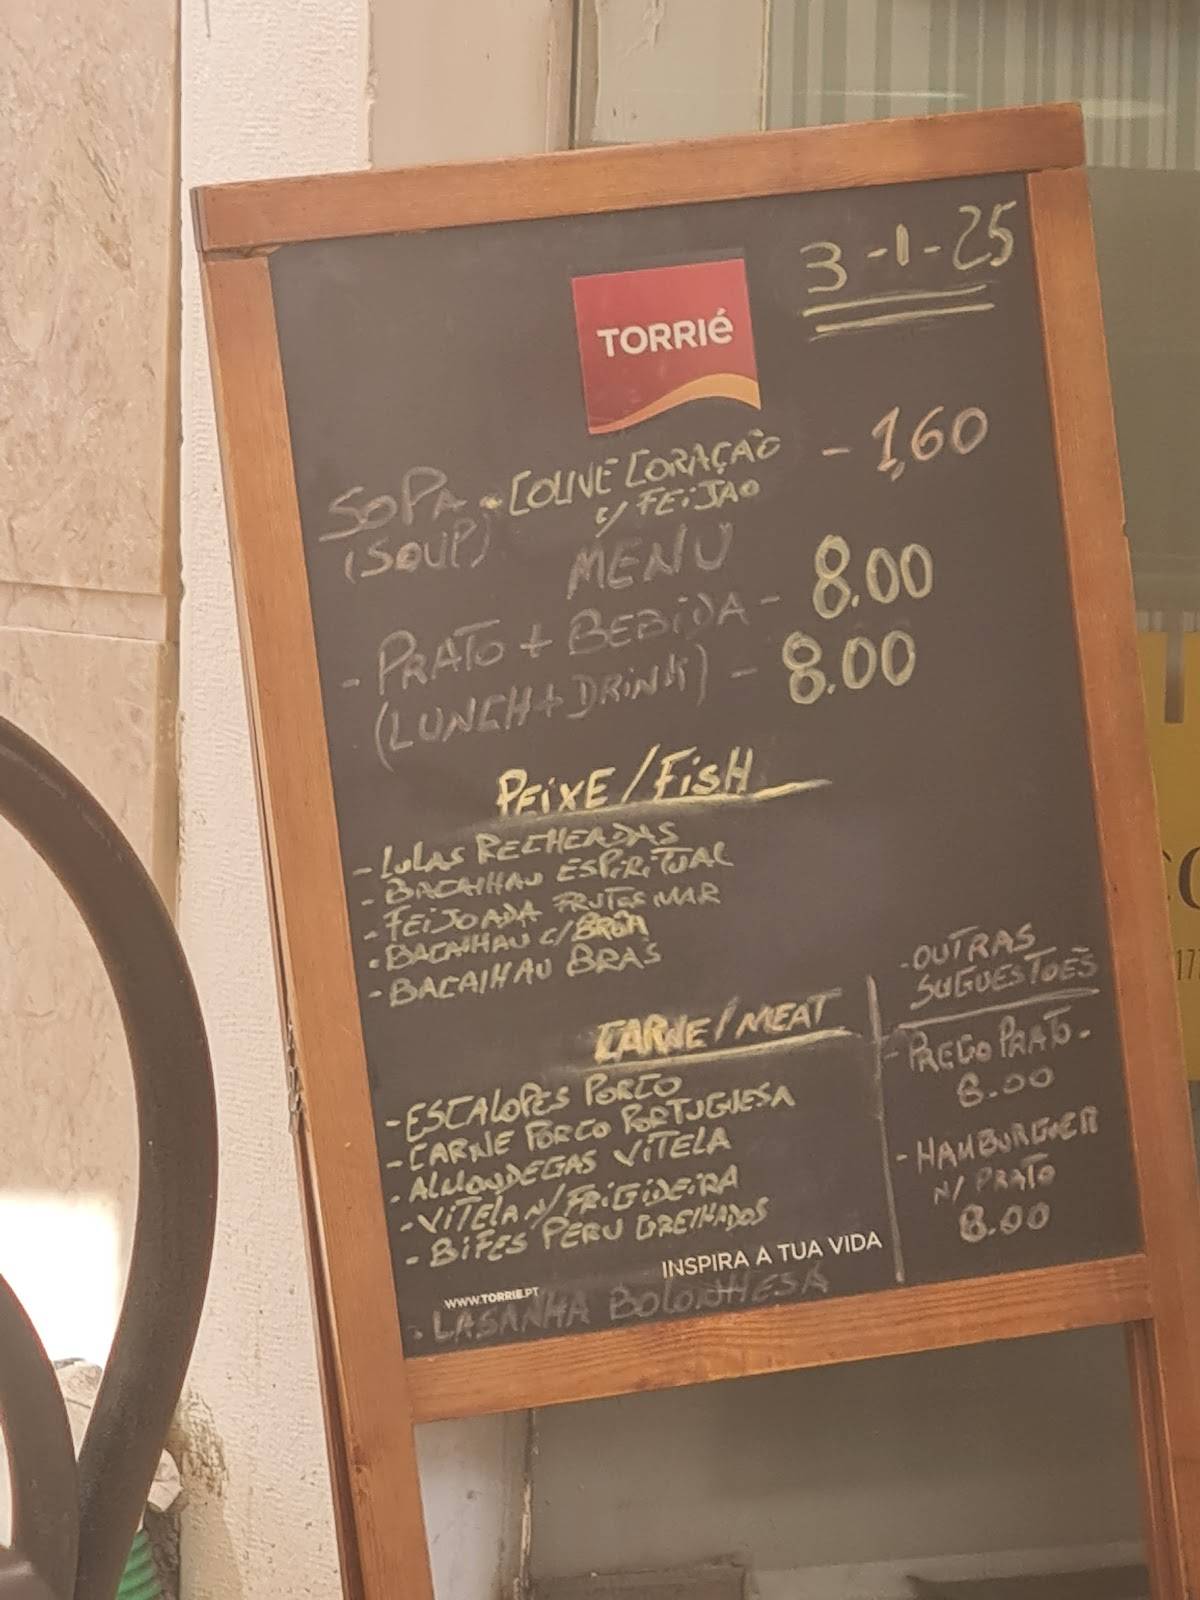 3-1-25
TORRIÉ
SOPA - COUVE CORAÇÃO - 1,60
c/ FEIJAO
(SOUP)
MENU
- PRATO + BEBIDA - 8.00
(LUNCH + DRINK) - 8.00
PEIXE / FISH
- LULAS RECHEADAS
- BACALHAU ESPIRITUAL
- FEIJOADA FRUTOS MAR
- BACALHAU C/ BROA
- BACALHAU BRAS
CARNE / MEAT
- ESCALOPES PORCO
- CARNE PORCO PORTUGUESA
- ALMONDEGAS VITELA
- VITELA N/ FRIGIDEIRA
- BIFES PERU GRELHADOS
INSPIRA A TUA VIDA
WWW.TORRIE.PT
- LASANHA BOLONHESA
- OUTRAS
SUGUESTOES
- PREGO PRATO -
8.00
- HAMBURGUER
N/ PRATO
8.00